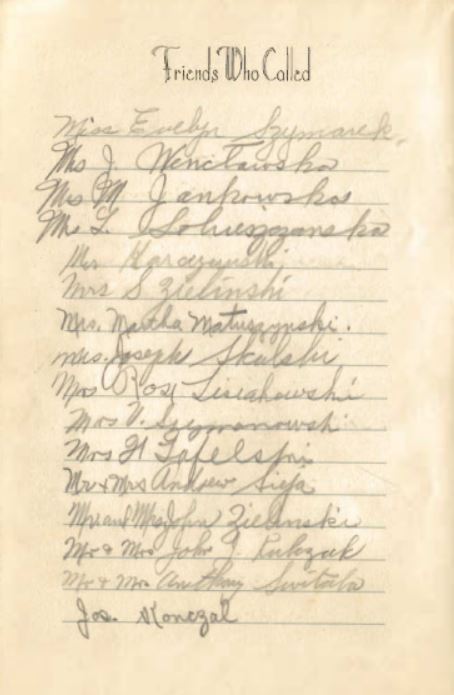 Friends Who Called
Miss Evelyn Szymarek
Mrs J. Wenclawska
Mrs M Jankowska
Mrs L.
Mrs
Mrs S Zielinski
Mrs. Martha Matuszynski.
Mrs. Joseph Skalski
Mrs Rose
Mrs V. Szymanowski
Mrs H Tafelski
Mr & Mrs Andrew Sieja
Mr and Mrs John Zielinski
Mr & Mrs John J. Kubzak
Mr & Mrs Anthony Switala
Jos. Konczal